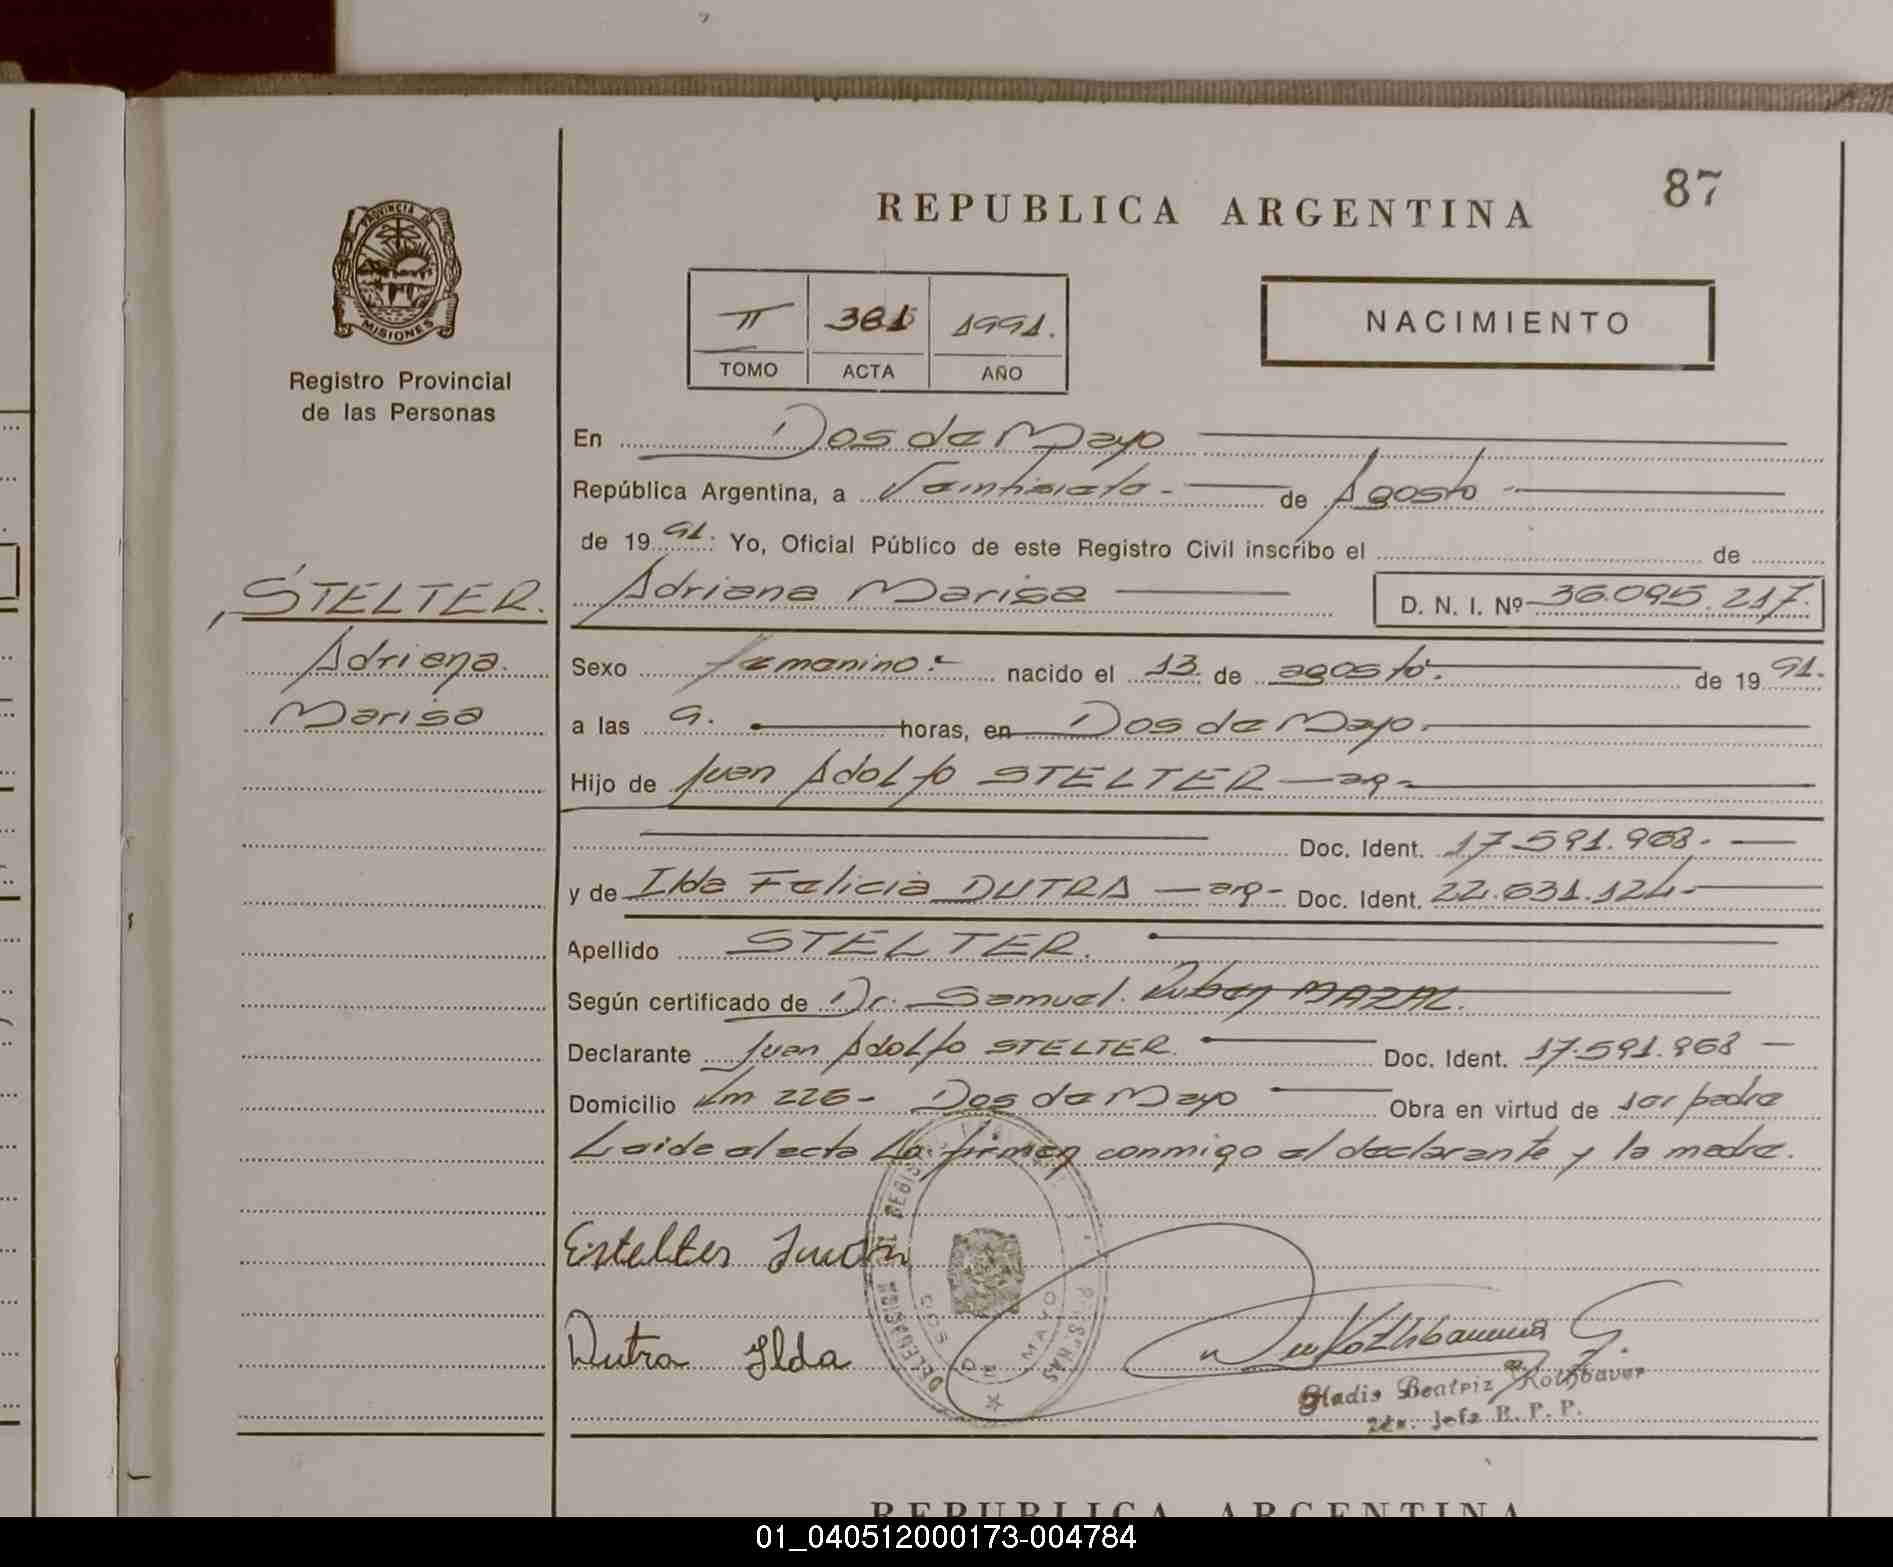 87
REPUBLICA ARGENTINA
PROVINCIA DE
MISIONES
II 381 1991.
TOMO ACTA AÑO
NACIMIENTO
Registro Provincial
de las Personas
En Dos de Mayo
República Argentina, a Veintisiete - de Agosto -
de 19 91. Yo, Oficial Público de este Registro Civil inscribo el de
STELTER. Adriana Marisa D. N. I. Nº 36.095.217.
Adriana. Sexo femenino.- nacido el 13. de agosto. de 19 91.
Marisa a las 9. horas, en Dos de Mayo.
Hijo de Juan Adolfo STELTER - arg -
Doc. Ident. 17.591.968. -
y de Ilda Felicia DUTRA - arg - Doc. Ident. 22.631.124 -
Apellido STELTER.
Según certificado de Dr. Samuel. Ruben MAZAL.
Declarante Juan Adolfo STELTER. Doc. Ident. 17.591.968 -
Domicilio Km 226 - Dos de Mayo Obra en virtud de ser padre
Leide el acta La firman conmigo el declarante y la madre.
Estelter Juan
Dutra Ilda
DOS DE MAYO
Rothbauer G.
Gladis Beatriz Rothbauer
2da. Jefa R. P. P.
REPUBLICA ARGENTINA
01_040512000173-004784